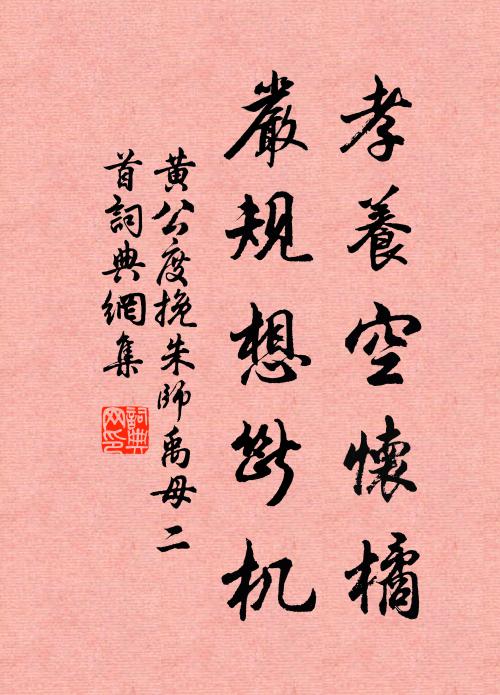 孝養空懷橘
嚴規想斷机
黃公度挽朱師禹母二
首詞典網集
詞典
网印